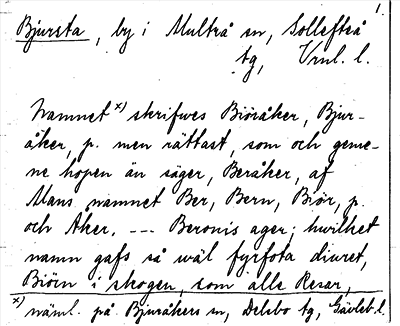 1.
Bjursta, by i Multrå sn, Sollefteå
tg, Vrnl. l.
Namnet x) skrifves Biöråker, Bjur-
åker, p. men rättast, som och geme-
ne hopen än säger, Beråker, af
Mans namnet Ber, Bern, Biör, p.
och Åker. --- Beronis ager; hwilket
namn gafs så wäl fyrfota diuret,
Biörn i skogen, som alle Resar,
x) näml. på Bjuråkers sn, Delsbo tg, Gävleb. l.